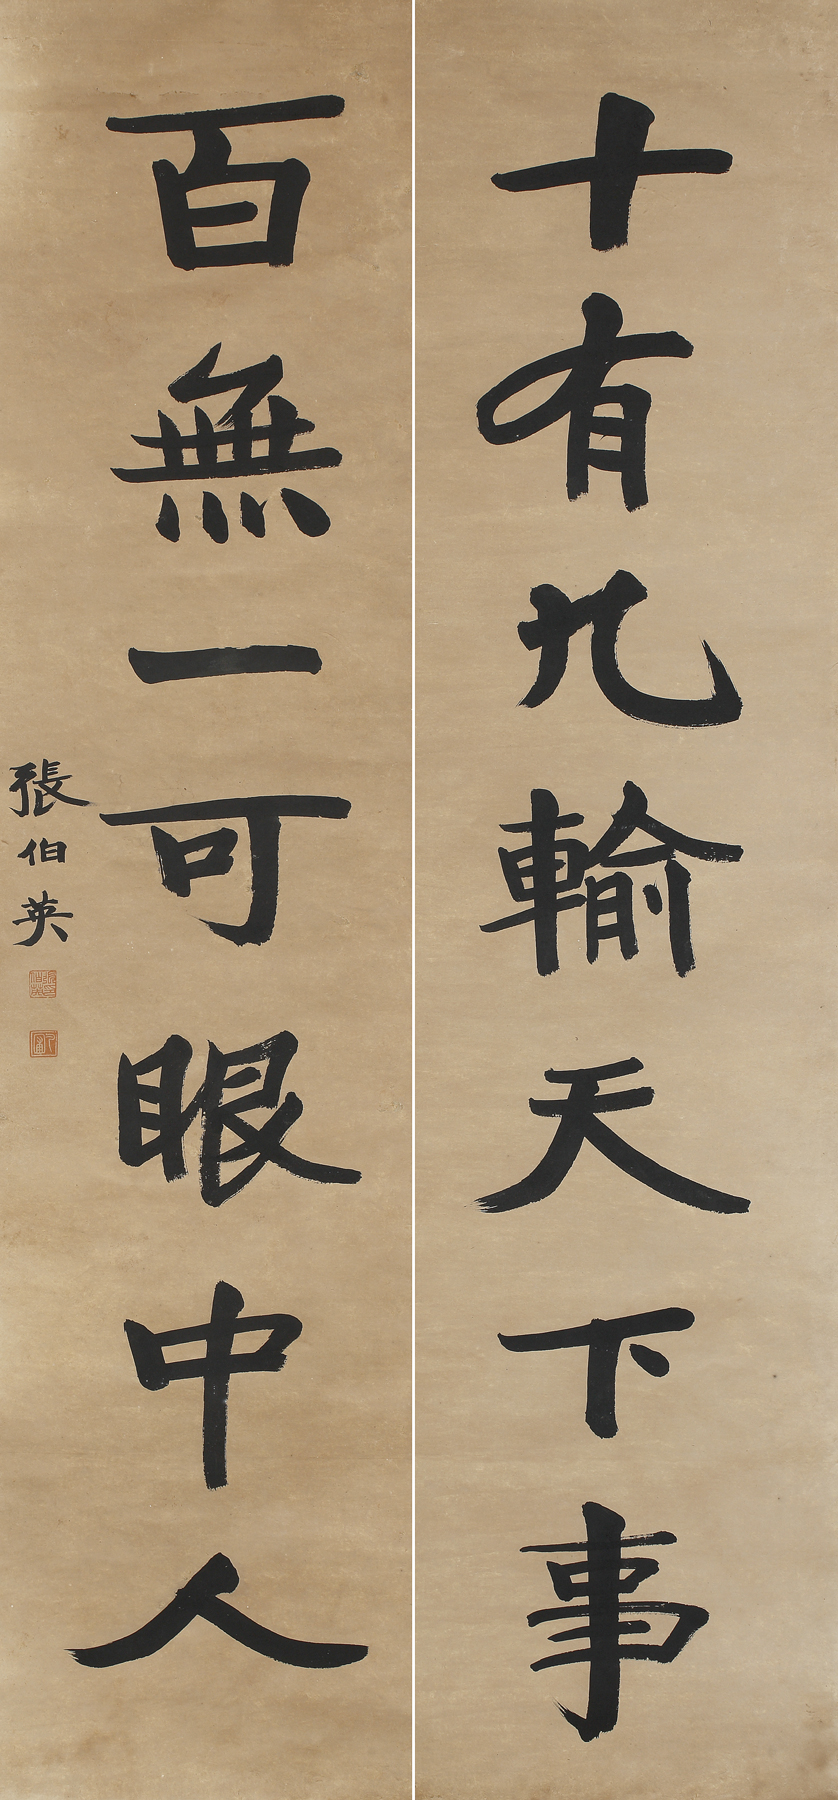 十有九輸天下事
百無一可眼中人
張伯英